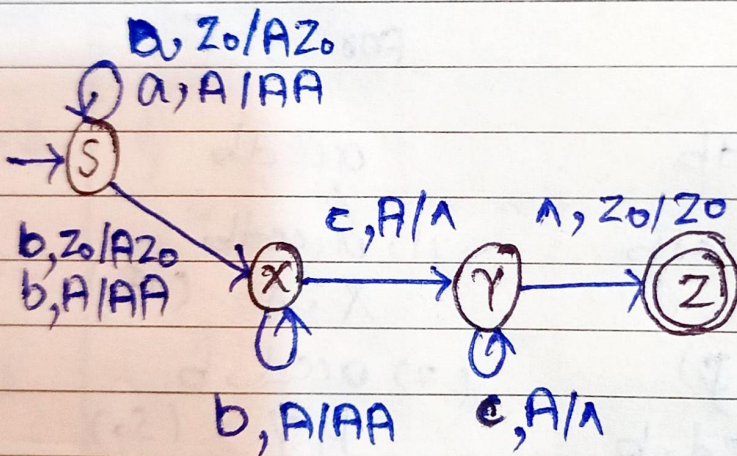 a, Z0/AZ0
a, A/AA
S
b, Z0/AZ0
b, A/AA
X
c, A/Λ
Y
Λ, Z0/Z0
Z
b, A/AA
c, A/Λ